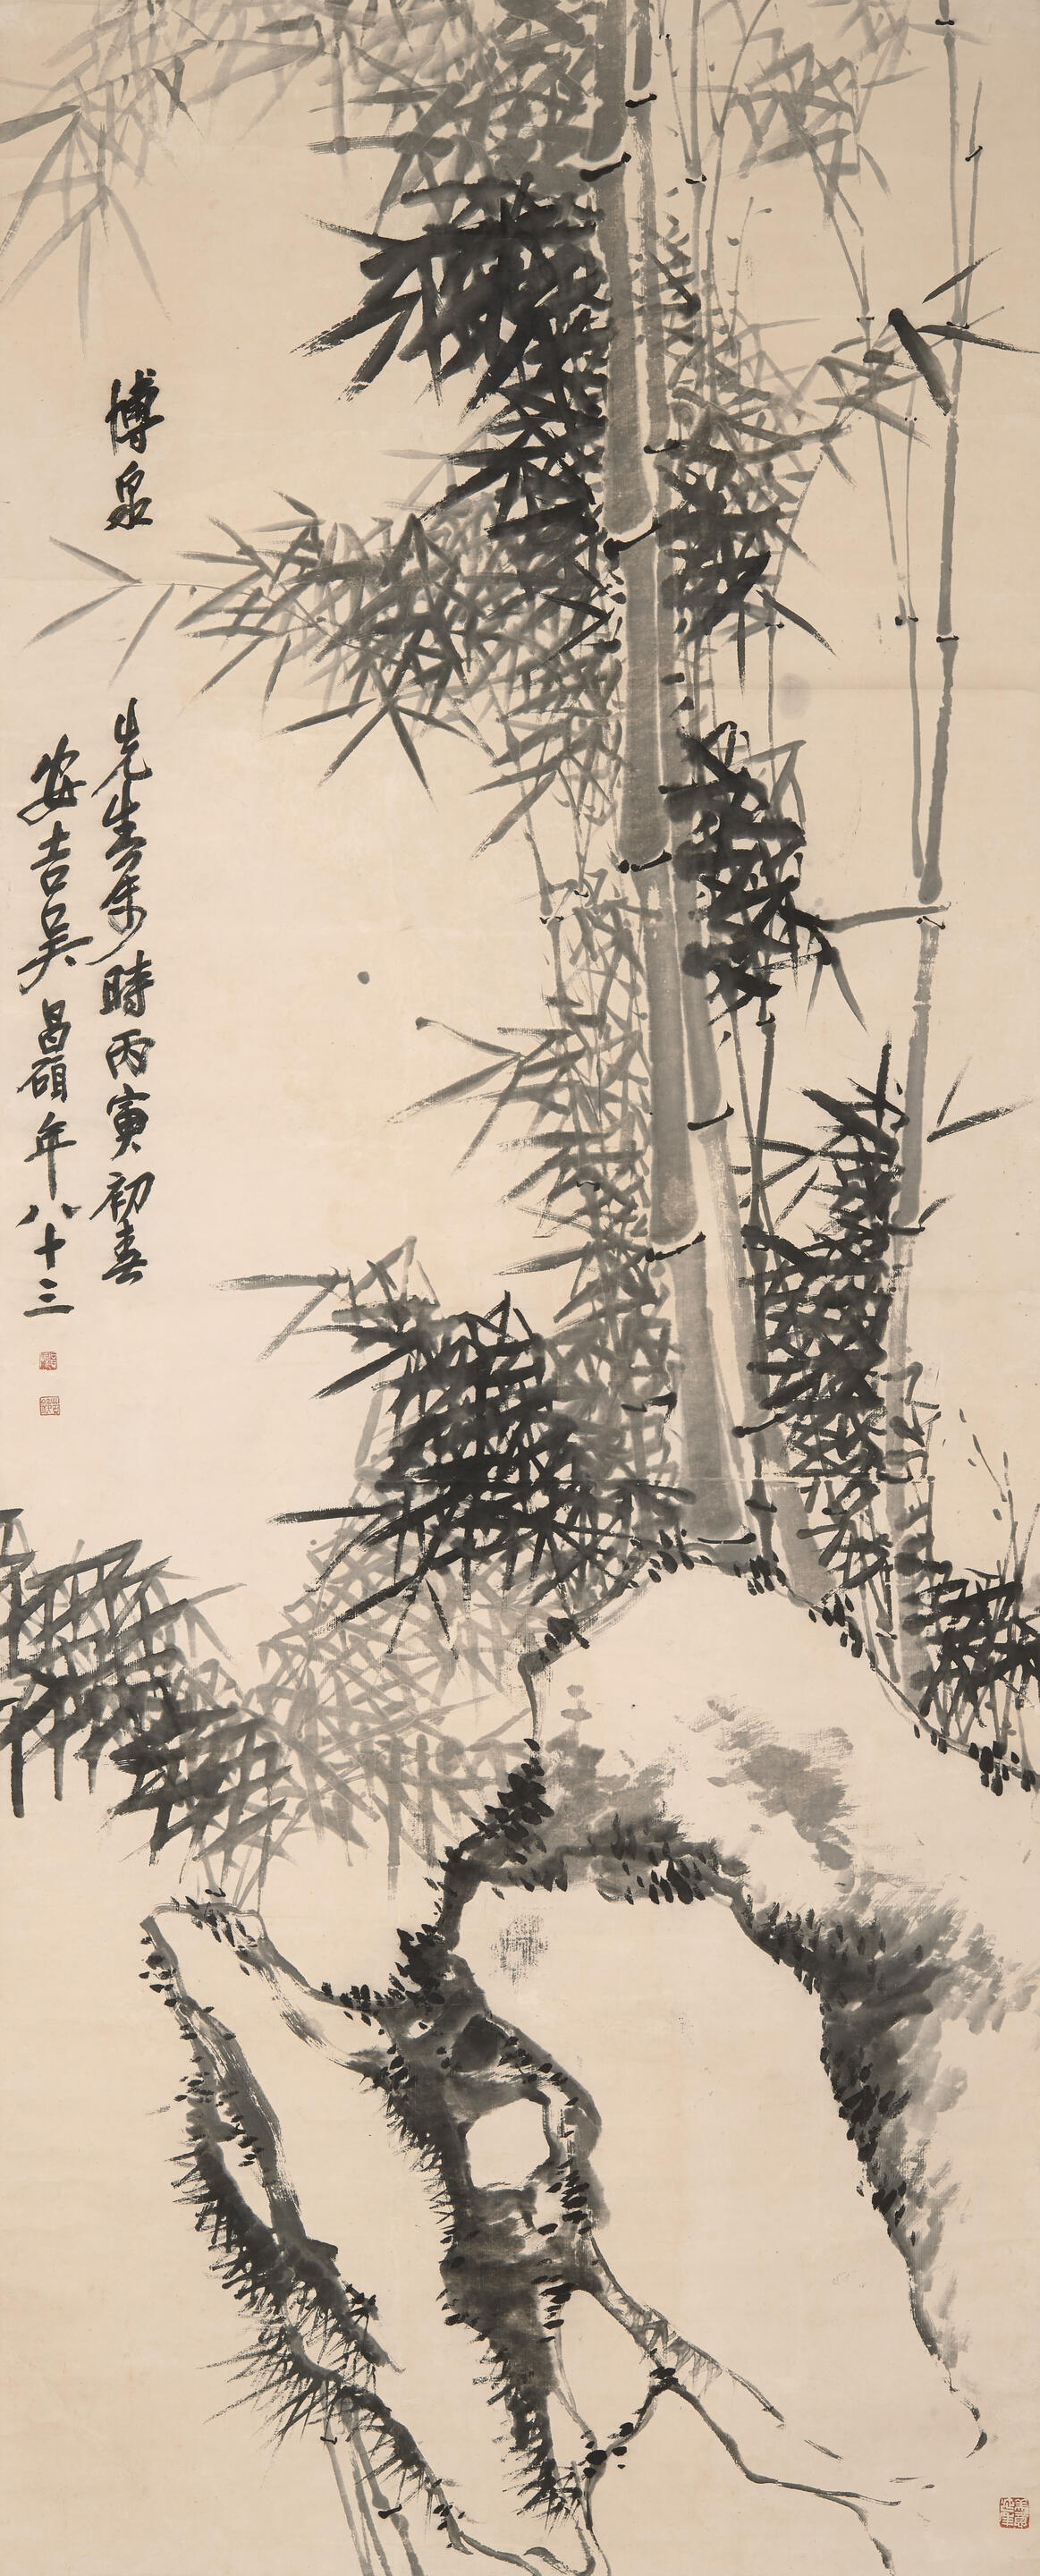 博泉
先生屬時丙寅初春
安吉吳昌碩年八十三